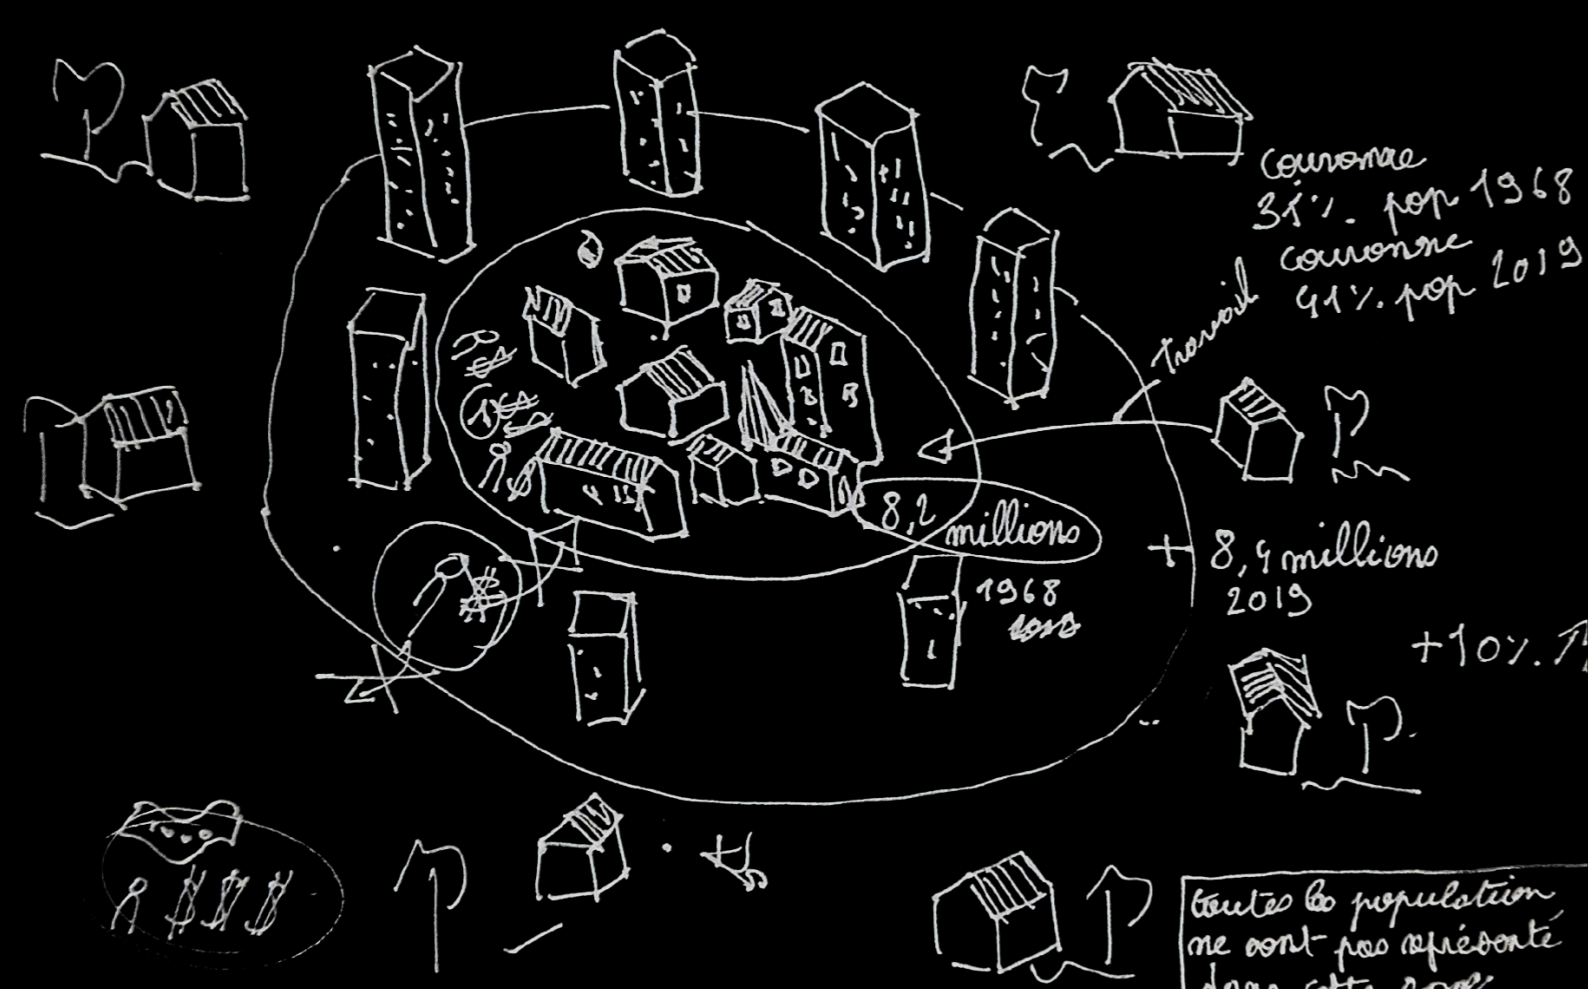 couronne
31%. pop 1968
couronne
41%. pop 2019
travail
8,2 millions
1968
+ 8,4 millions
2019
+10%
toutes les population
ne sont pas représenté
dans cette zone